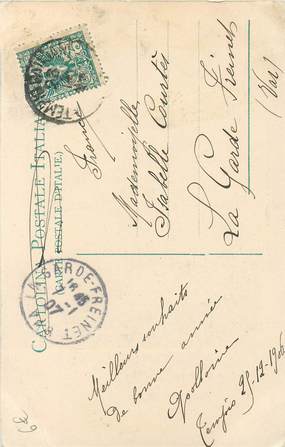 CARTOLINA POSTALE ITALIANA
CARTE POSTALE D'ITALIE
France
Mademoiselle
Isabelle Courtès
La Garde Freinet
(Var)
LA GARDE-FREINET
VAR
07
Meilleurs souhaits
de bonne année
25-12-1906